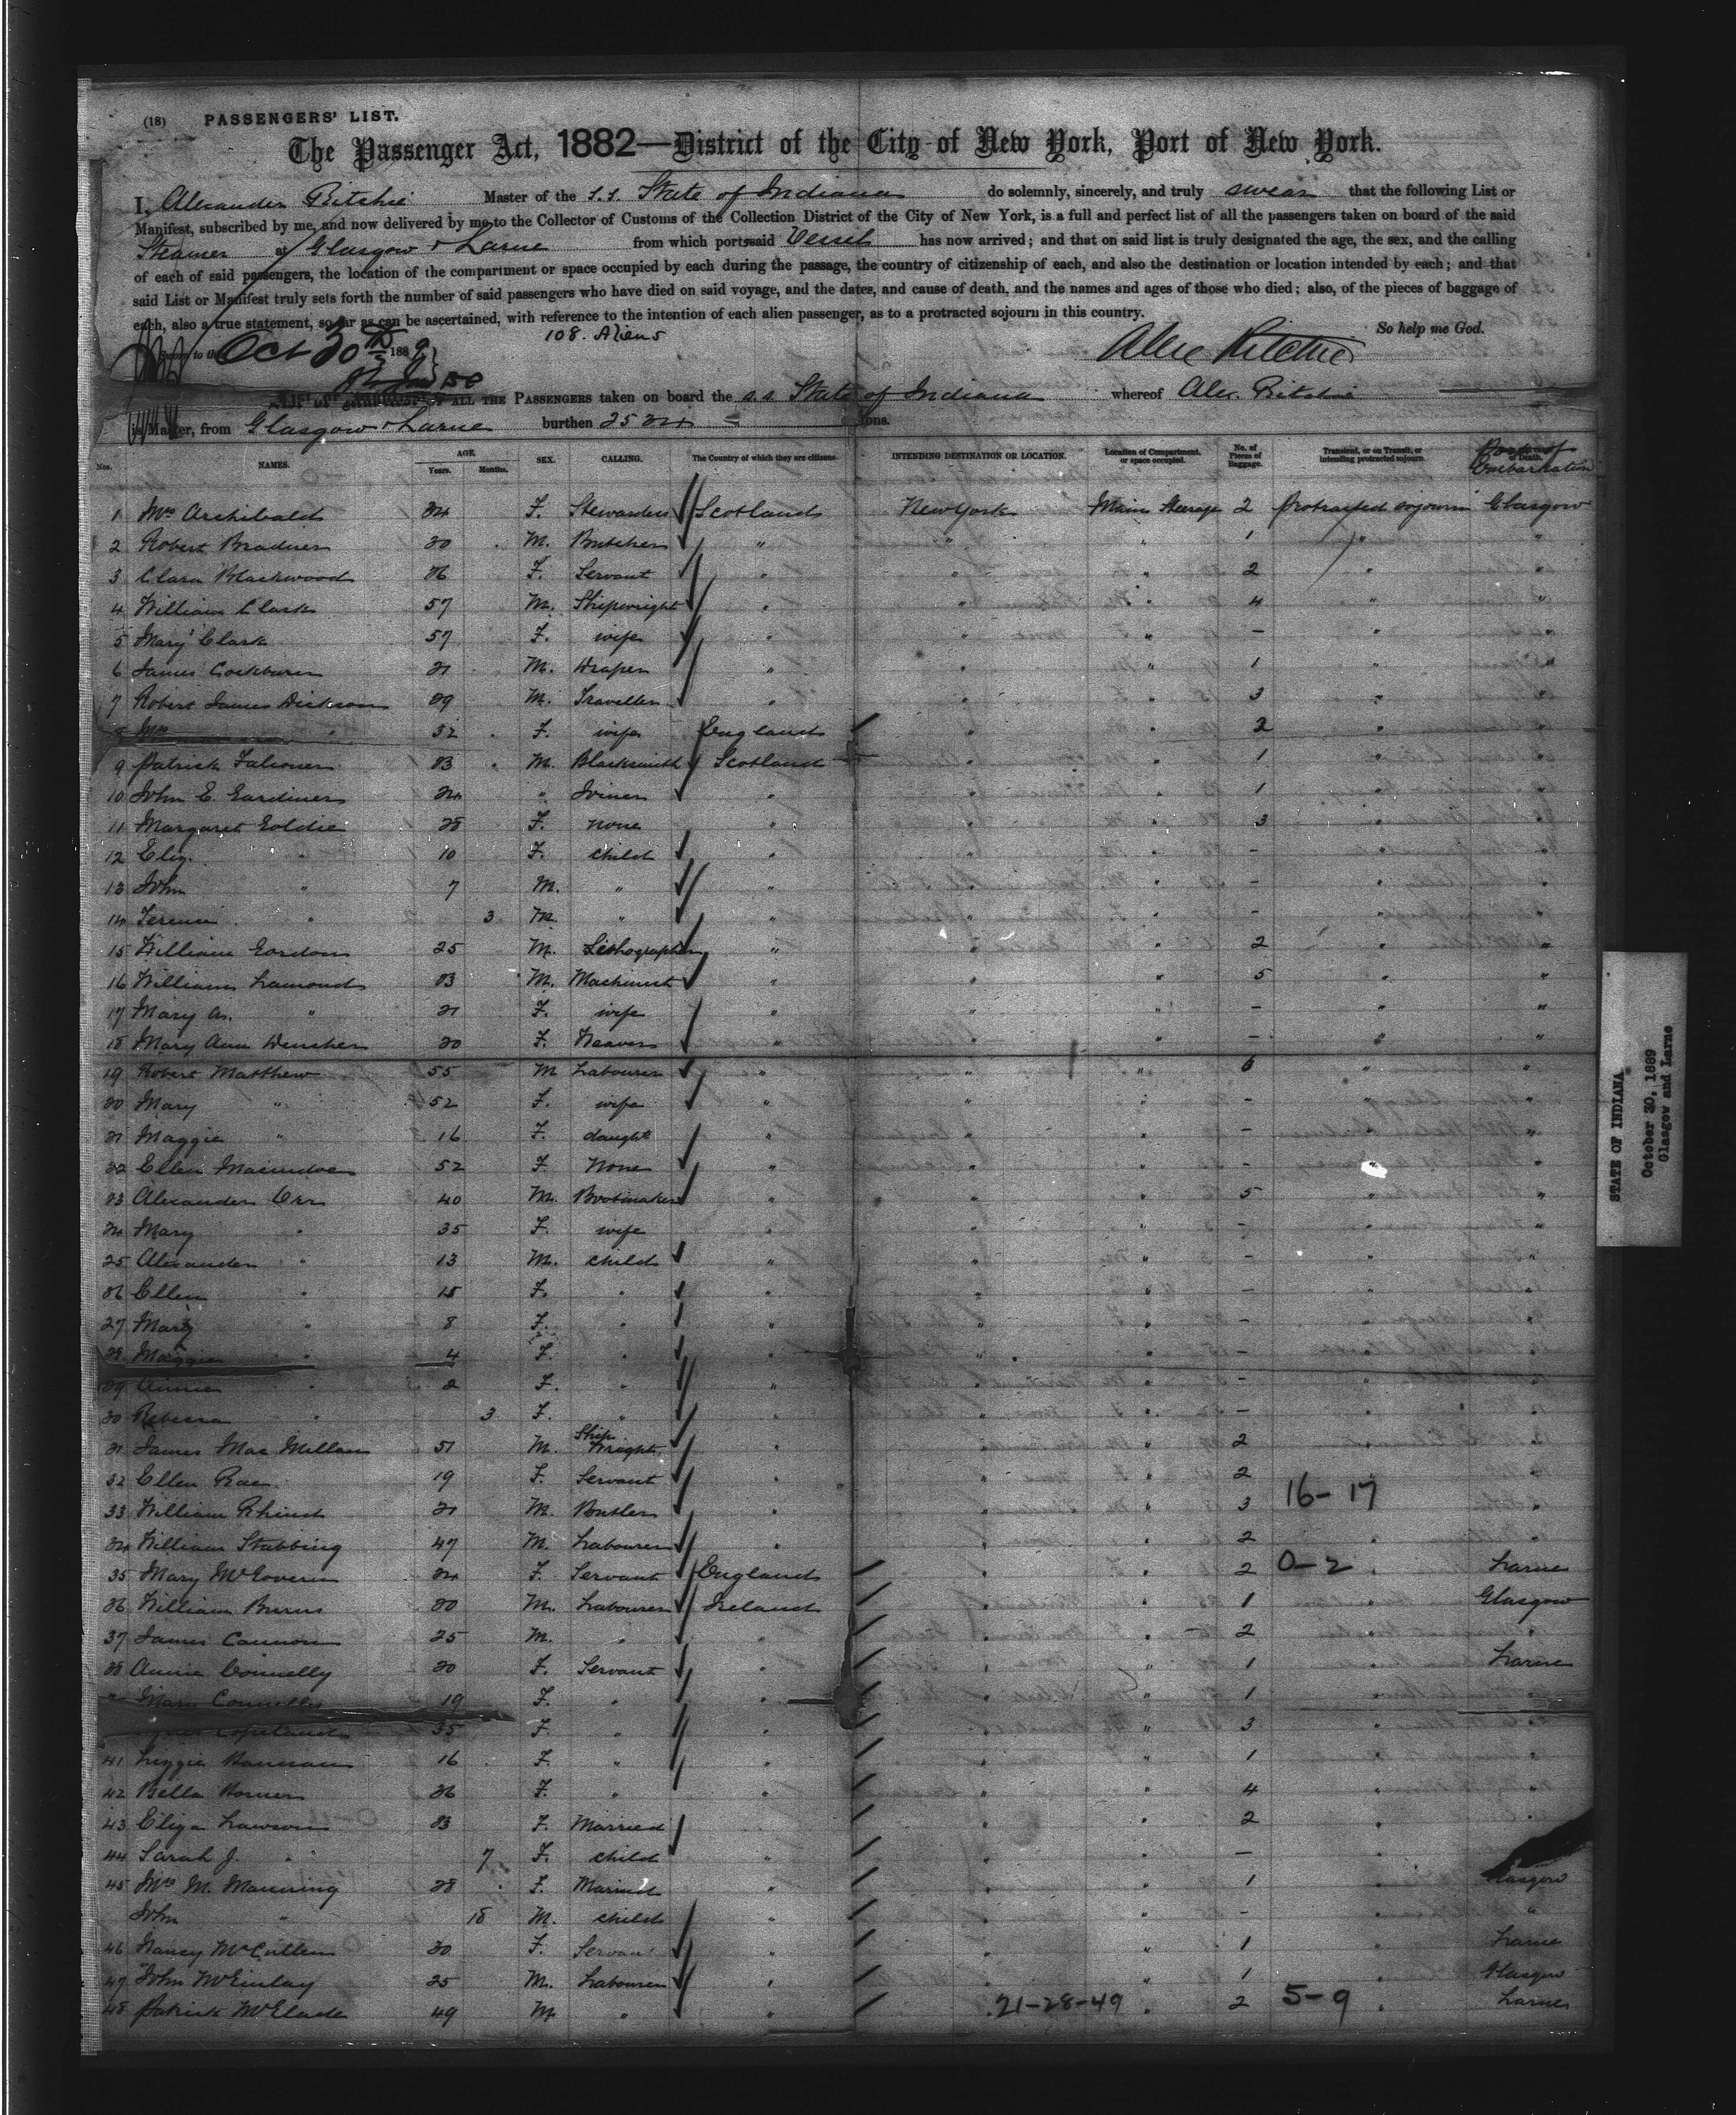 (18) PASSENGERS' LIST.
The Passenger Act, 1882—District of the City of New York, Port of New York.
I, Alexander Ritchie Master of the S.S. State of Indiana do solemnly, sincerely, and truly swear that the following List or
Manifest, subscribed by me, and now delivered by me to the Collector of Customs of the Collection District of the City of New York, is a full and perfect list of all the passengers taken on board of the said
Steamer at Glasgow & Larne from which port said Vessel has now arrived; and that on said list is truly designated the age, the sex, and the calling
of each of said passengers, the location of the compartment or space occupied by each during the passage, the country of citizenship of each, and also the destination or location intended by each; and that
said List or Manifest truly sets forth the number of said passengers who have died on said voyage, and the dates, and cause of death, and the names and ages of those who died; also, of the pieces of baggage of
each, also a true statement, so far as can be ascertained, with reference to the intention of each alien passenger, as to a protracted sojourn in this country.
So help me God.
108. Aliens
Oct 30th 1889
Alex Ritchie
ALL THE PASSENGERS taken on board the s.s. State of Indiana whereof Alex. Ritchie
is Master, from Glasgow & Larne burthen 2524 tons.
Nos. NAMES. AGE. Years. Months. SEX. CALLING. The Country of which they are citizens. INTENDING DESTINATION OR LOCATION. Location of Compartment, or space occupied. No. of Pieces of Baggage. Transient, or on Transit, or intending protracted sojourn. Port of Embarkation
1 Mrs Archibald 24 F. Stewardess Scotland New York Main Steerage 2 Protracted sojourn Glasgow
2 Robert 20 M. Butcher " " " 1 " "
3 Clara Blackwood 26 F. Servant " " " 2 " "
4 William Clark 57 M. Shipwright " " " 4 " "
5 Mary Clark 57 F. wife " " " - " "
6 James Cockburn 21 M. Draper " " " 1 " "
7 Robert James Dickson 29 M. Traveller " " " 3 " "
8 Mrs " 32 F. wife England " " 2 " "
9 Patrick Falconer 23 M. Blacksmith Scotland " " 1 " "
10 John E. Gardiner 24 " Joiner " " " 1 " "
11 Margaret Goldie 28 F. none " " " 3 " "
12 Eliz. " 10 F. child " " " - " "
13 John " 7 M. " " " " - " "
14 " 3 M. " " " " - " "
15 William Gordon 25 M. Lithographer " " " 2 " "
16 William Lamond 23 M. Machinist " " " 5 " "
17 Mary A. " 21 F. wife " " " - " "
18 Mary Ann 20 F. Weaver " " " - " "
19 Robert Matthew 55 M Labourer " " " 6 " "
20 Mary " 52 F. wife " " " - " "
21 Maggie " 16 F. daught " " " - " "
22 Ellen Macindoe 52 F. None " " " - " "
23 Alexander Orr 40 M. Bootmaker " " " 5 " "
24 Mary " 35 F. wife " " " - " "
25 Alexander " 13 M. child " " " - " "
26 Ellen " 15 F. " " " " - " "
27 Mary " 8 F. " " " " - " "
28 Maggie " 4 F. " " " " - " "
29 Annie " 2 F. " " " " - " "
30 Rebecca " 3 F. " " " " - " "
31 James Mac Millan 51 M. Ship Wright " " " 2 " "
32 Ellen Rae 19 F. Servant " " " 2 " "
33 William Rhind 21 M. Butler " " " 3 16-17 "
34 William Stubbing 47 M. Labourer " " " 2 " "
35 Mary McGovern 24 F. Servant England " " 2 0-2 " Larne
36 William Burns 20 M. Labourer Ireland " " 1 " Glasgow
37 James Cannon 25 M. " " " " 2 " "
38 Annie Connelly 20 F. Servant " " " 1 " Larne
" Mary Connelly 19 F. " " " " 1 " "
Copeland 35 F. " " " " 3 " "
41 Lizzie Hannan 16 F. " " " " 1 " "
42 Bella Horner 26 F. " " " " 4 " "
43 Eliza Lawson 23 F. Married " " 2 " "
44 Sarah J. " 7 F. child " " " - "
45 Mrs M. Manning 28 F. Married " " " 1 " Glasgow
John " 18 M. child " " " - " "
46 Nancy McCullen 20 F. Servant " " " 1 " Larne
47 John McGinlay 25 M. Labourer " " " 1 " Glasgow
48 Patrick McGlade 49 M. " " 21-28-49 " 2 5-9 " Larne
STATE OF INDIANA
October 30, 1889
Glasgow and Larne